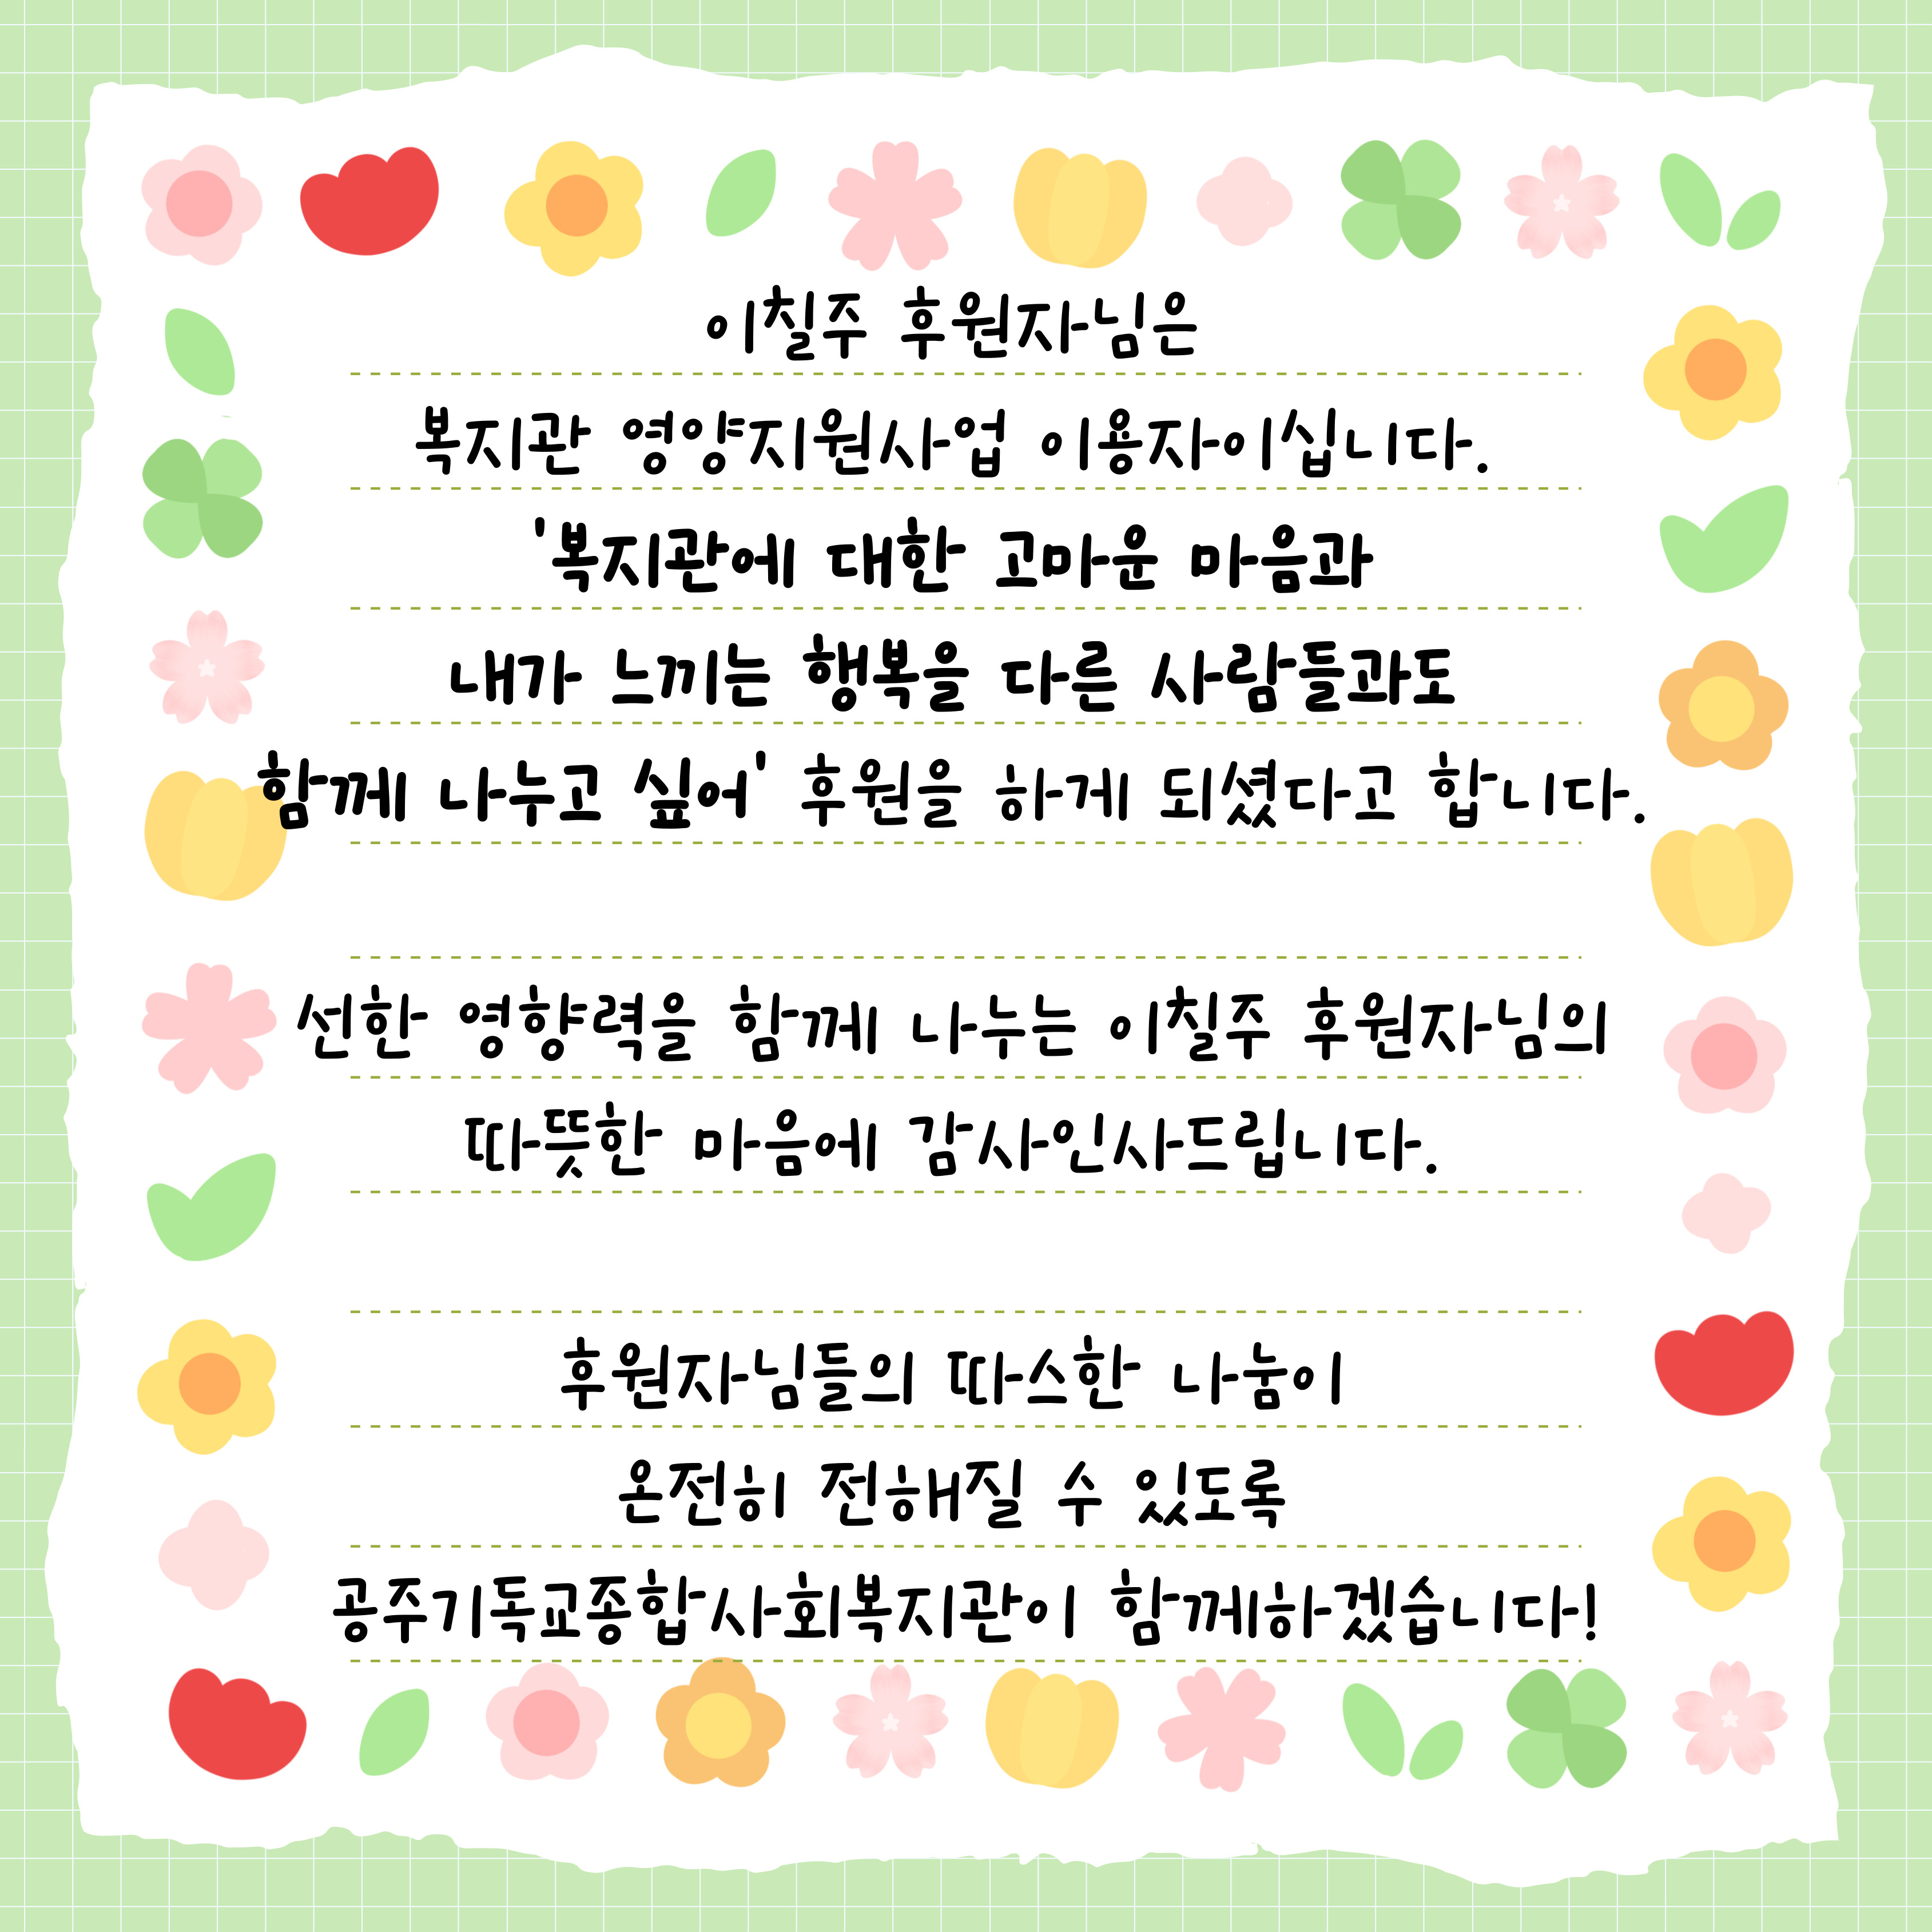 이칠주 후원자님은
복지관 영양지원사업 이용자이십니다.
'복지관에 대한 고마운 마음과
내가 느끼는 행복을 다른 사람들과도
함께 나누고 싶어' 후원을 하게 되셨다고 합니다.
선한 영향력을 함께 나누는 이칠주 후원자님의
따뜻한 마음에 감사인사드립니다.
후원자님들의 따스한 나눔이
온전히 전해질 수 있도록
공주기독교종합사회복지관이 함께하겠습니다!